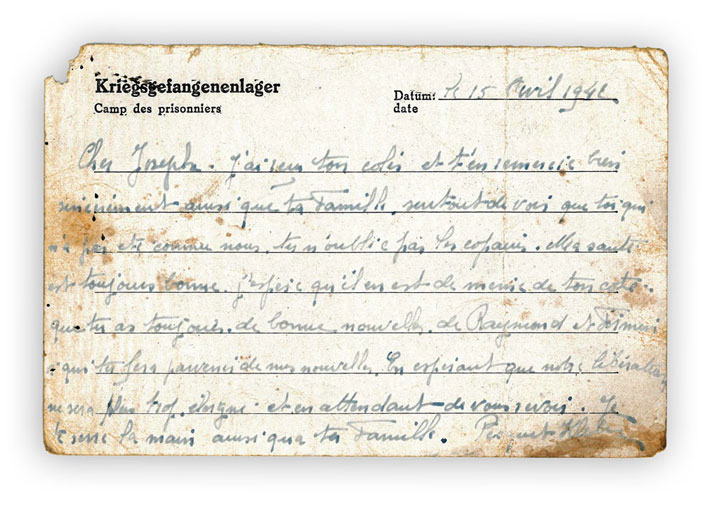 Kriegsgefangenenlager
Camp des prisonniers
Datum: le 15 Avril 194
date
Cher Joseph. J'ai reçu ton colis et t'en remercie bien
sincèrement ainsi que ta Famille, surtout de voir que toi qui
n'a pas été comme nous, tu n'oublie pas les copains. Ma santé
est toujours bonne. j'espère qu'il en est de même de ton côté
que tu as toujours de bonne nouvelle de Raymond et
a qui tu fera parvenir de mes nouvelles. En espérant que notre libération
ne sera plus trop éloigné et en attendant de vous revoir. Je
te serre la main ainsi qua ta Famille.